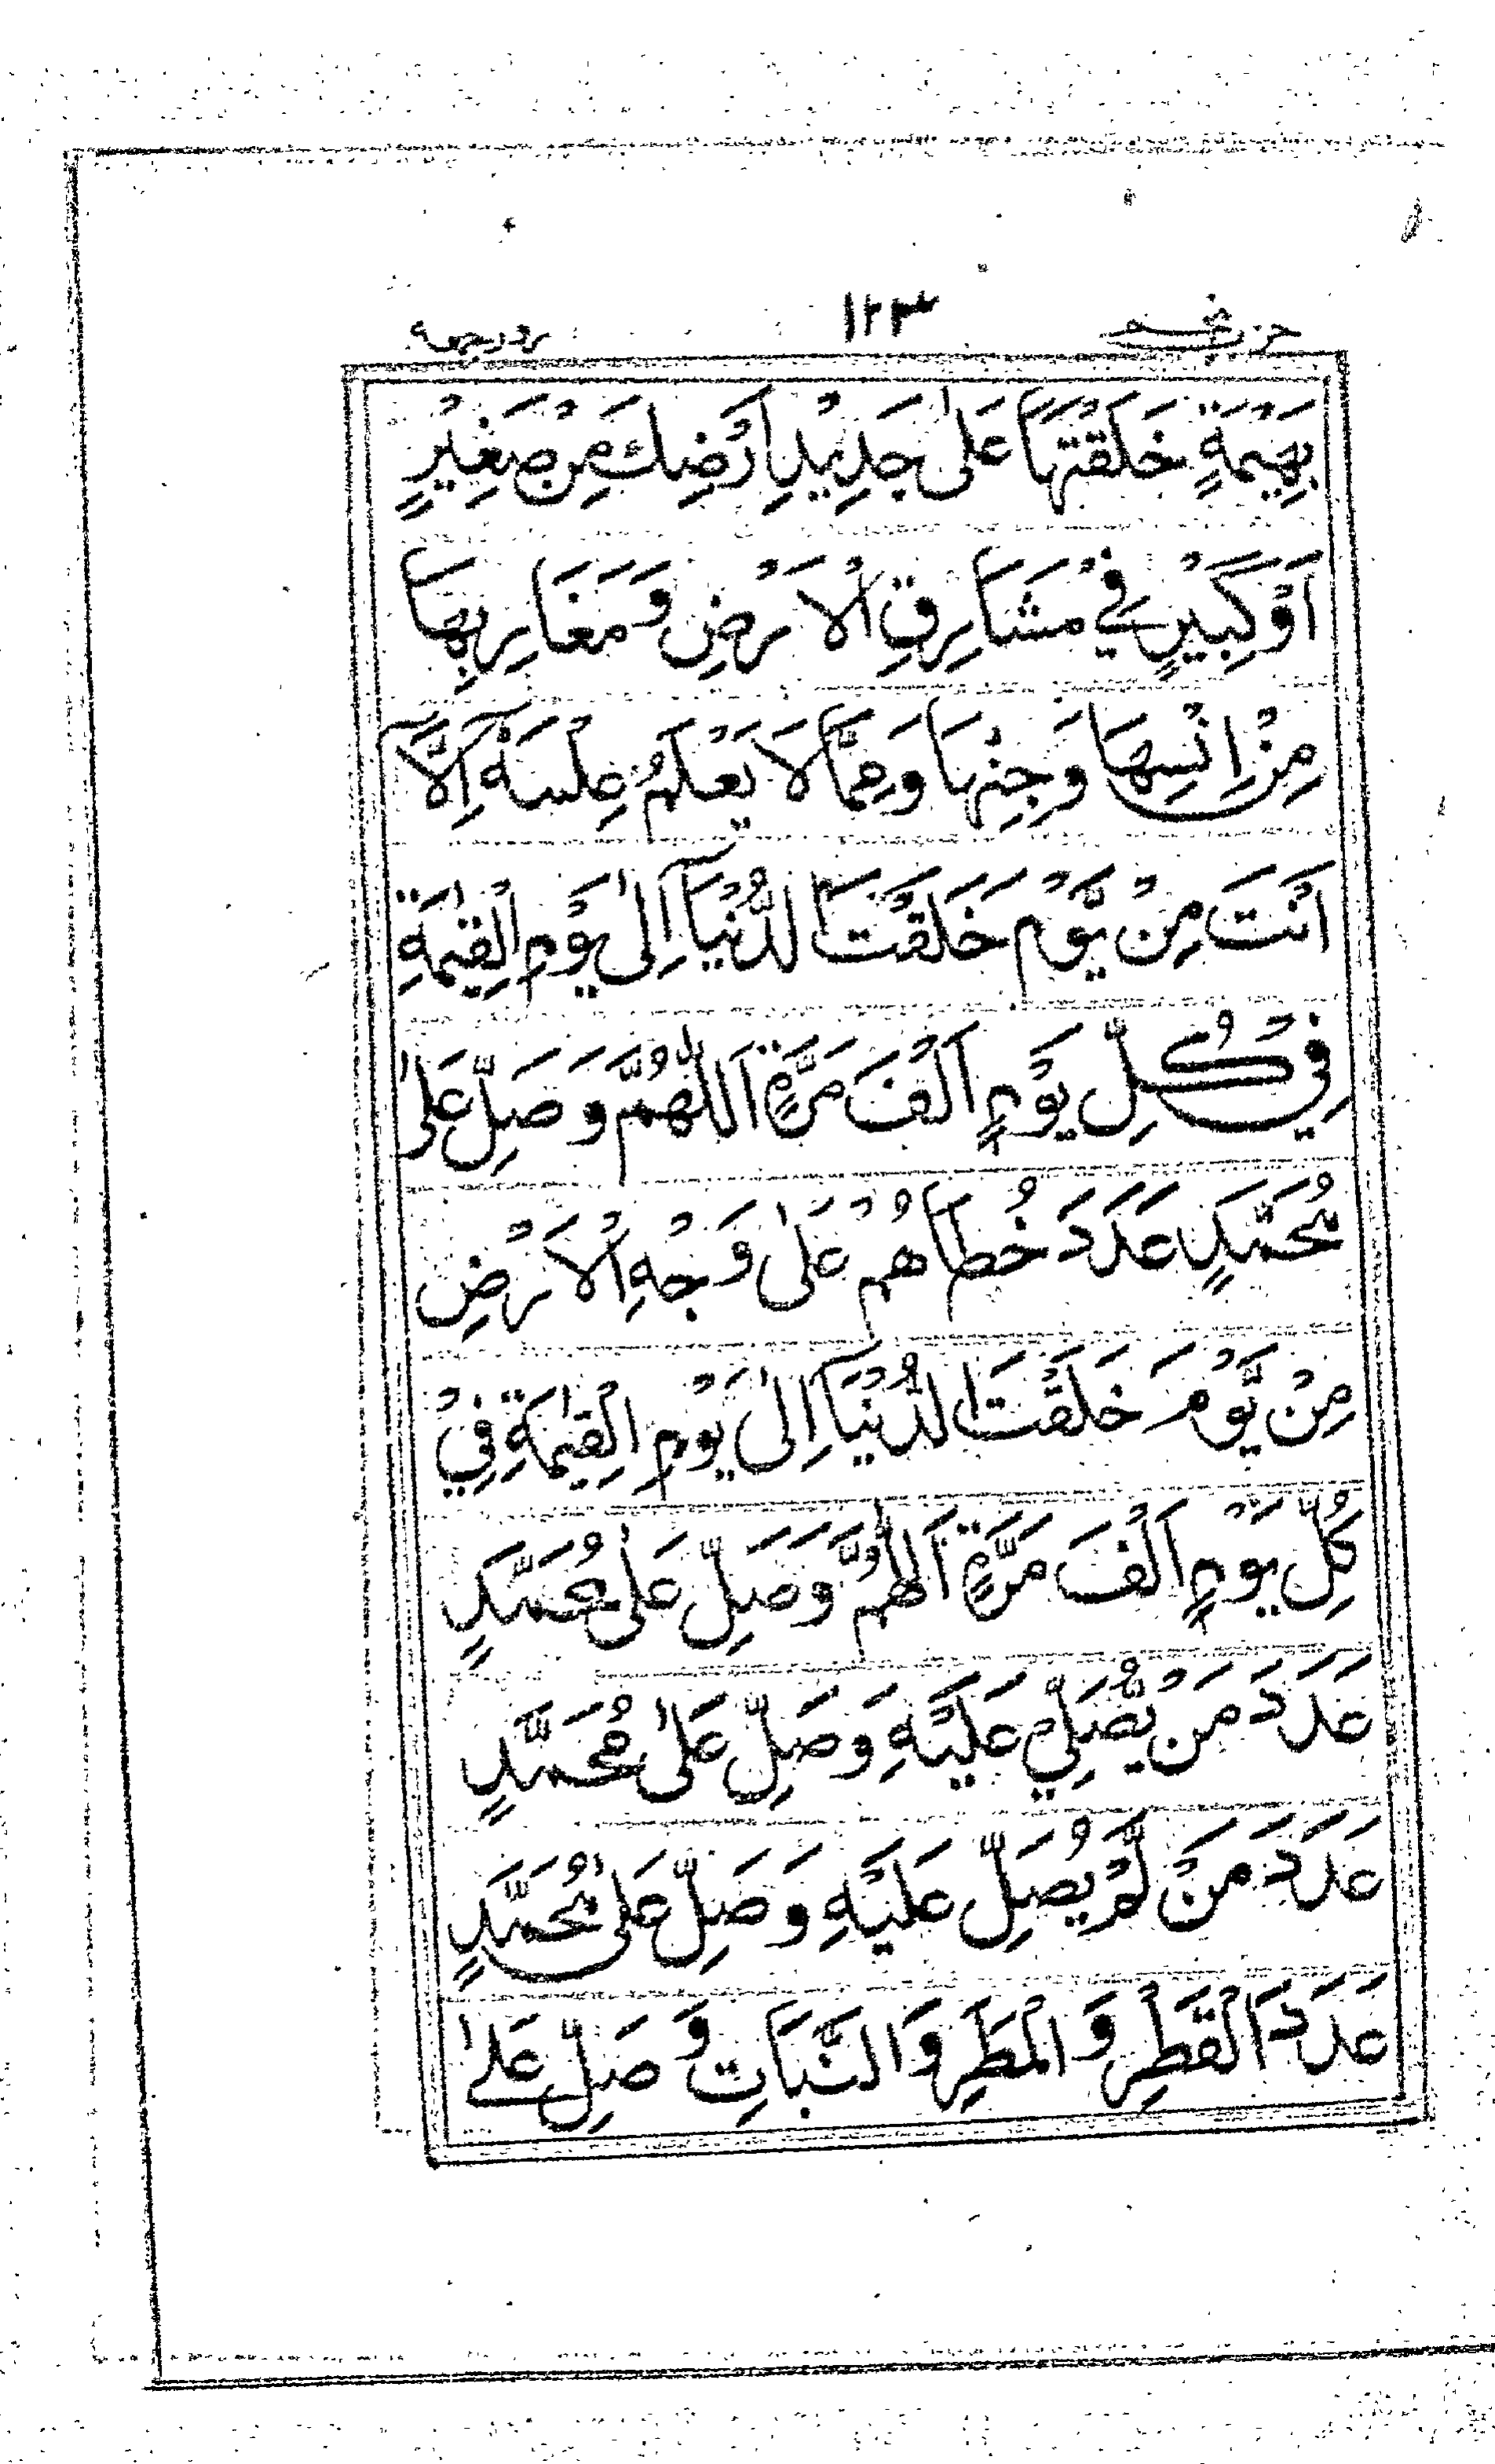 حزب پنجم ١٢٣ روز جمعه
بَهِيْمَةٍ خَلَقْتَهَا عَلٰى جَدِيْدِ اَرْضِكَ مِنْ صَغِيْرٍ
اَوْ كَبِيْرٍ فِيْ مَشَارِقِ الْاَرْضِ وَمَغَارِبِهَا
مِنْ اِنْسِهَا وَجِنِّهَا وَمِمَّا لَا يَعْلَمُ عِلْمَهٗ اِلَّا
اَنْتَ مِنْ يَّوْمِ خَلَقْتَ الدُّنْيَآ اِلٰى يَوْمِ الْقِيٰمَةِ
فِيْ كُلِّ يَوْمٍ اَلْفَ مَرَّةٍ اَللّٰهُمَّ وَصَلِّ عَلٰى
مُحَمَّدٍ عَدَدَ خُطَاهُمْ عَلٰى وَجْهِ الْاَرْضِ
مِنْ يَّوْمَ خَلَقْتَ الدُّنْيَآ اِلٰى يَوْمِ الْقِيٰمَةِ فِيْ
كُلِّ يَوْمٍ اَلْفَ مَرَّةٍ اَللّٰهُمَّ وَصَلِّ عَلٰى مُحَمَّدٍ
عَدَدَ مَنْ يُّصَلِّيْ عَلَيْهِ وَصَلِّ عَلٰى مُحَمَّدٍ
عَدَدَ مَنْ لَّمْ يُصَلِّ عَلَيْهِ وَصَلِّ عَلٰى مُحَمَّدٍ
عَدَدَ الْقَطْرِ وَالْمَطَرِ وَالنَّبَاتِ وَصَلِّ عَلٰى